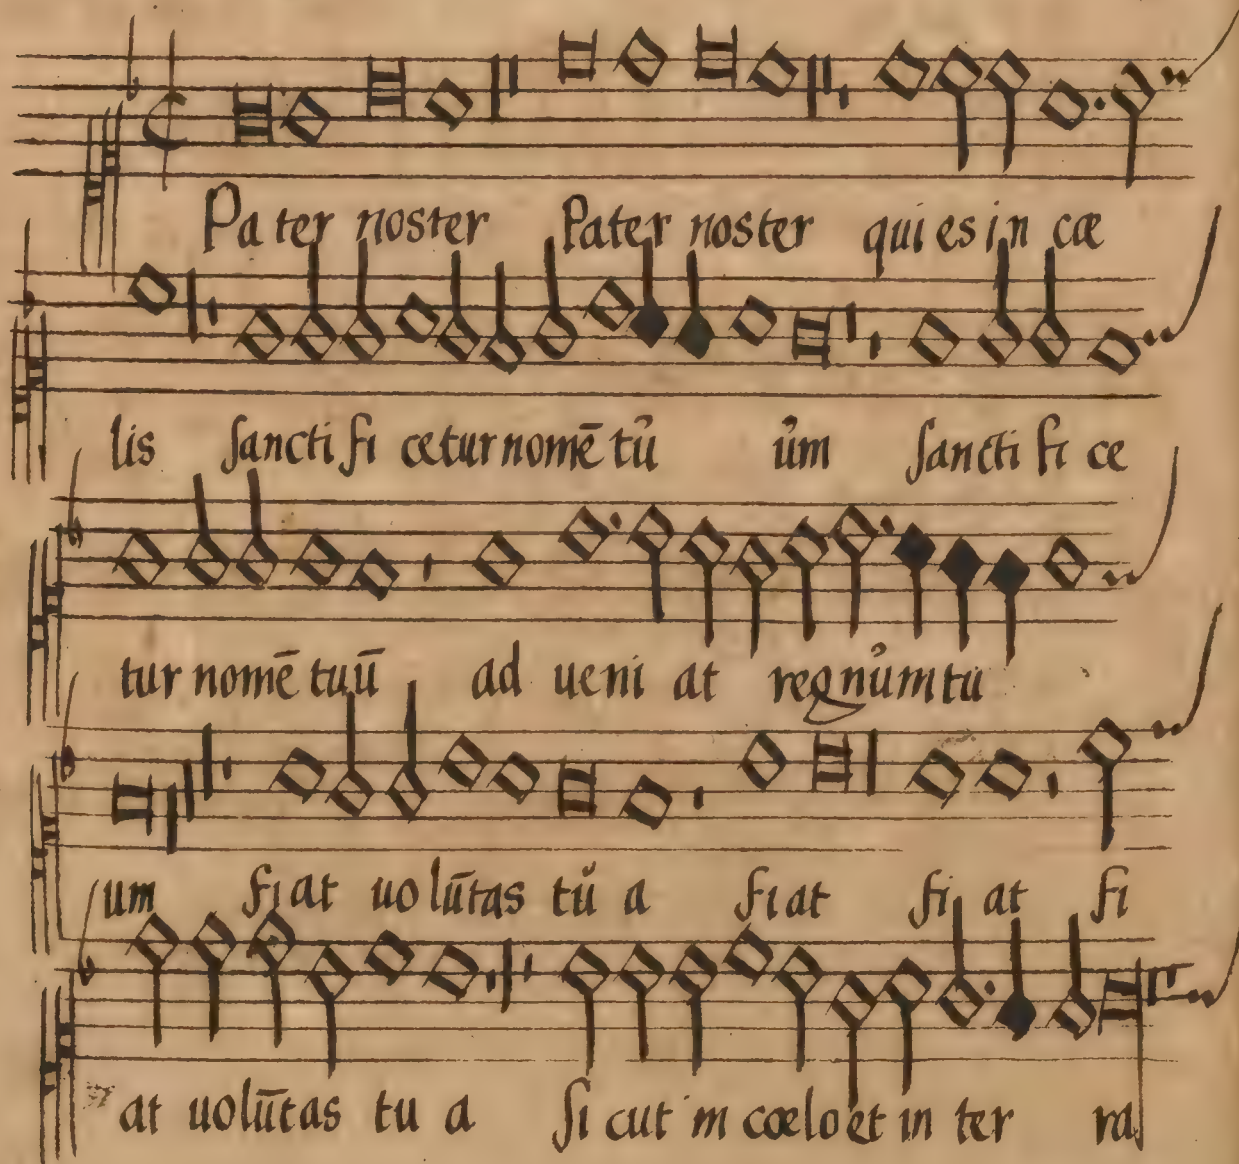 Pa ter noster Pater noster qui es in cæ
lis sancti fi cetur nomē tu um sancti fi ce
tur nomē tuū ad ueni at regnum tu
um fiat uo lūtas tu a fiat fi at fi
at uolūtas tu a si cut in cœlo et in ter ra